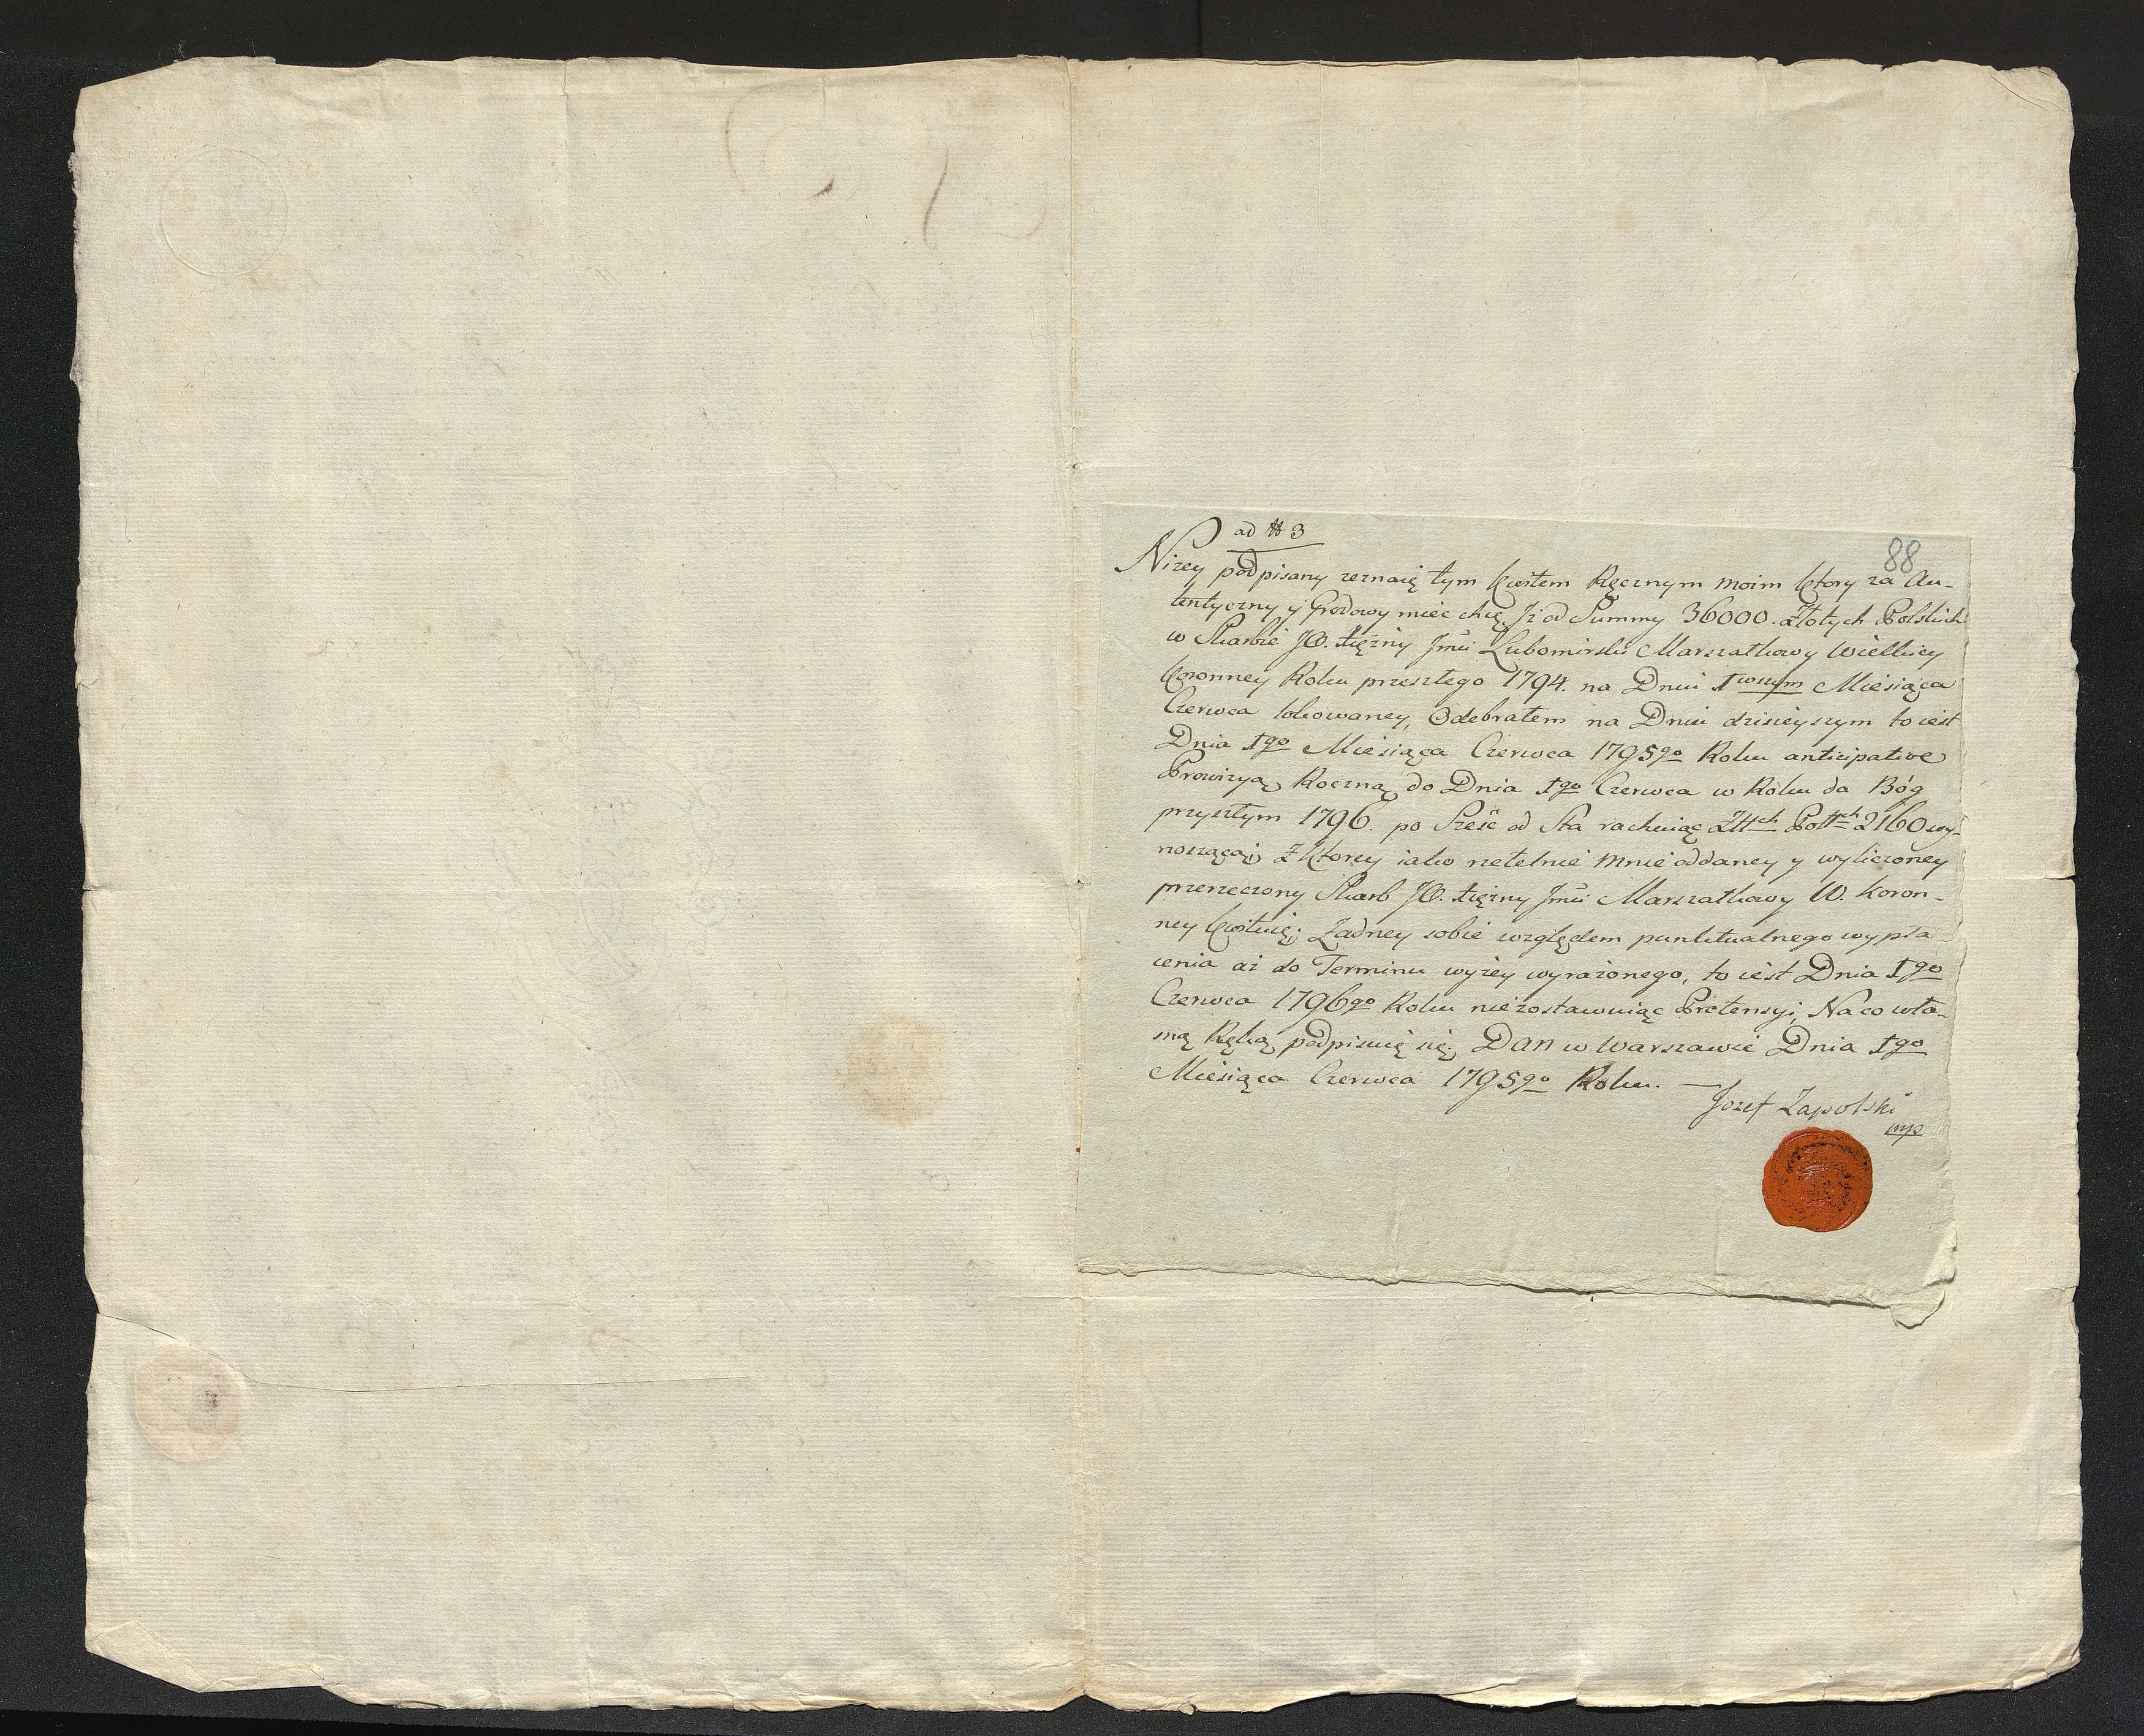 ad # 3
88
Nizey podpisany zeznaię tym Kwitem Ręcznym moim Ktory za Au-
tentyczny y Grodowy mieć chcę, Jż od Summy 36000. Złotych Polskich
w Skarbie JO. Xiężny Jmći Lubomirski Marszałkowy Wielkiey
Koronney Roku przeszłego 1794. na Dniu 1wszym Miesiąca
Czerwca lokowaney, Odebrałem na Dniu dzisieyszym to iest
Dnia 1go Miesiąca Czerwca 1795go Roku anticipative
Prowizyą Roczną do Dnia 1go Czerwca w Roku da Bóg
przyszłym 1796. po Sześć od Sta rachuiąc Złłch Polłch 2160 wy-
noszącą; Z Ktorey iako rzetelnie mnie oddaney y wyliczoney
przerzeczony Skarb JO. Xiężny Jmći Marszałkowy W. Koron-
ney Kwituię; Żadney sobie względem punktualnego wypła-
cenia aż do Terminu wyżey wyrażonego, to iest Dnia 1go
Czerwca 1796go Roku niezostawuiąc Pretensyi, Na co wła-
sną Ręką podpisuię się; Dan w Warszawie Dnia 1go
Miesiąca Czerwca 1795go Roku. —
Jozef Zapolski
mp